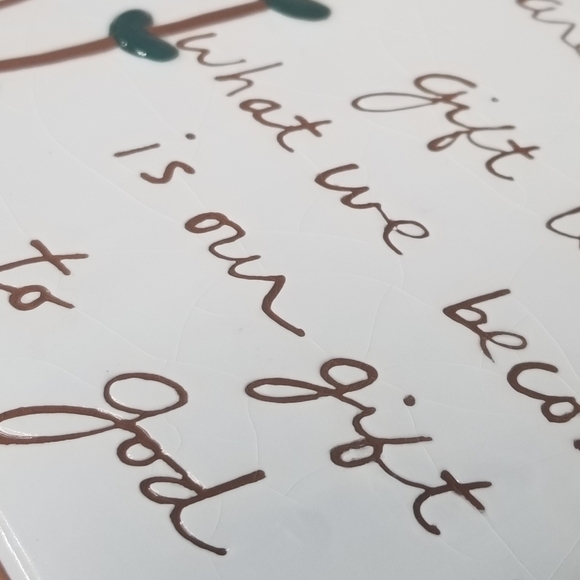 gift
what we beco
is our gift
to god